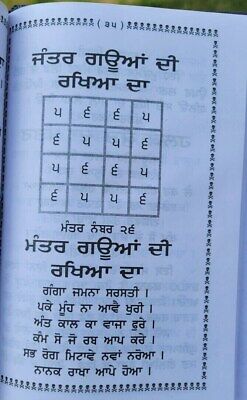 ( ੩੫ )
ਜੰਤਰ ਗਊਆਂ ਦੀ
ਰਖਿਆ ਦਾ
੫ ੬ ੬ ੫
੬ ੫ ੫ ੬
੫ ੬ ੫ ੬
੬ ੫ ੬ ੫
ਮੰਤਰ ਨੰਬਰ ੨੬
ਮੰਤਰ ਗਊਆਂ ਦੀ
ਰਖਿਆ ਦਾ
ਗੰਗਾ ਜਮਨਾ ਸਰਸਤੀ ।
ਪਕੇ ਮੂੰਹ ਨਾ ਆਵੈ ਖੁਰੀ ।
ਅੰਤ ਕਾਲ ਕਾ ਵਾਜਾ ਫੁਰੇ ।
ਕੰਮ ਸੋ ਜੋ ਰਬ ਆਪ ਕਰੇ ।
ਸਭ ਰੋਗ ਮਿਟਾਵੇ ਨਵਾਂ ਨਰੋਆ ।
ਨਾਨਕ ਰਾਖਾ ਆਪੇ ਹੋਆ ।